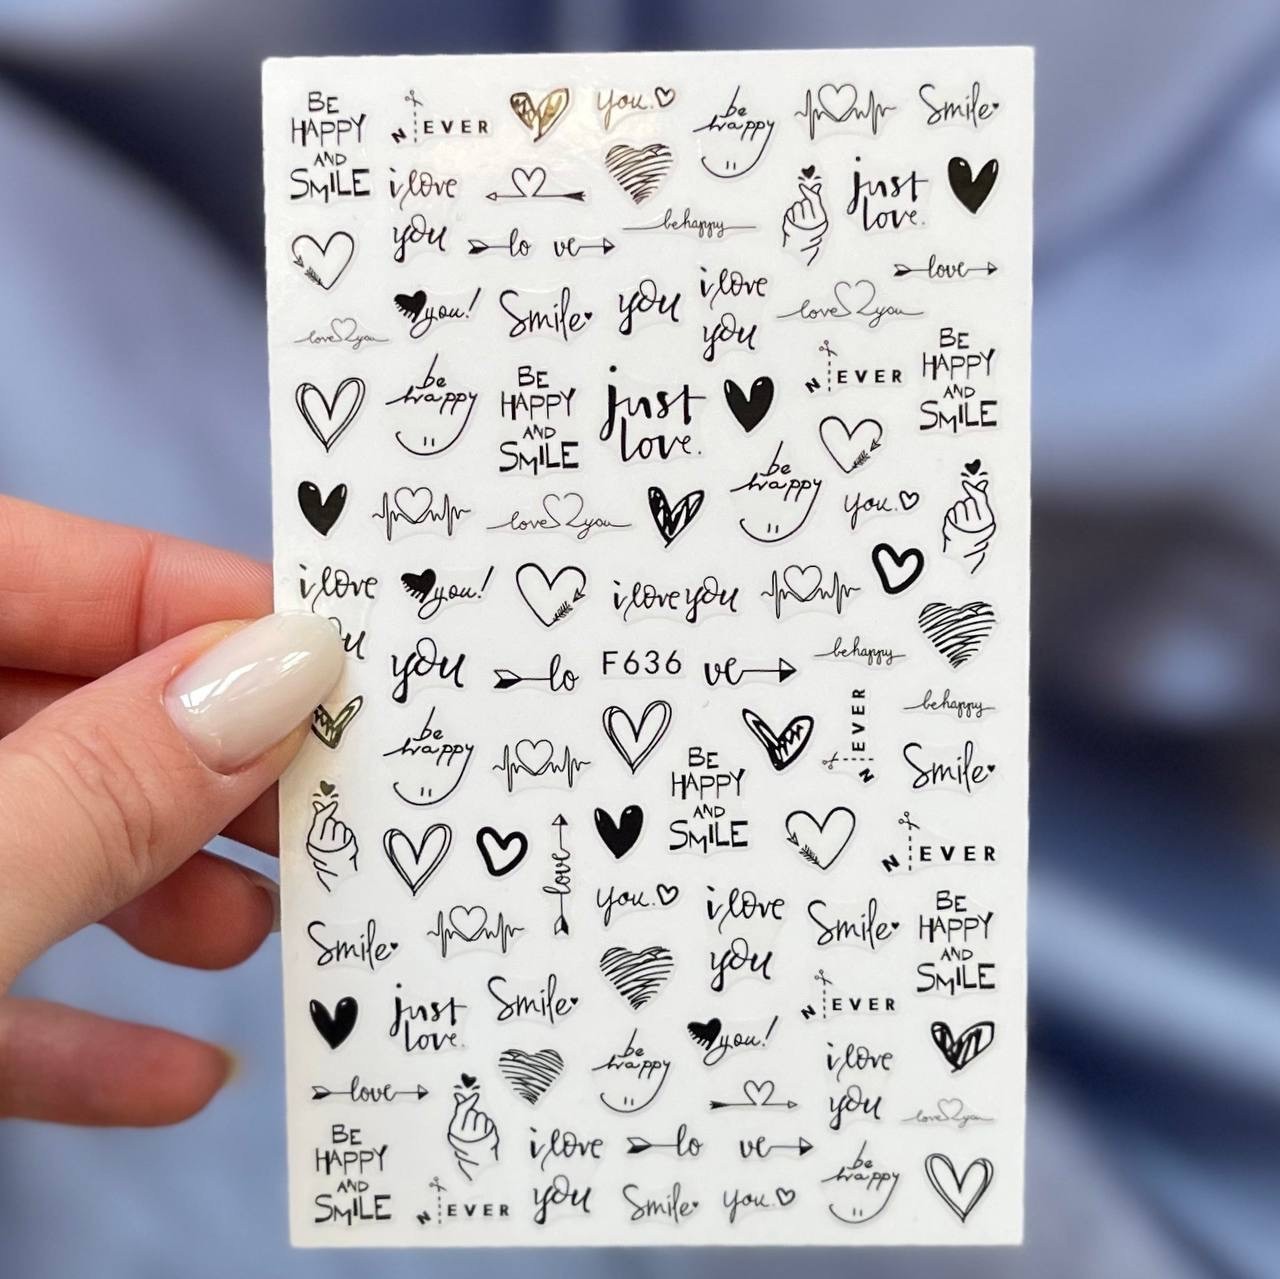 BE
HAPPY
AND
SMILE
N EVER
you.
be
happy
Smile
i love
you
just
love.
be happy
lo ve
love
you!
Smile
you
i love
you
love you
love you
BE
HAPPY
AND
SMILE
be
happy
BE
HAPPY
AND
SMILE
just
love.
N EVER
be
happy
you.
love you
i love
you!
i love you
be happy
you
lo
F636
ve
be happy
be
happy
N EVER
Smile
BE
HAPPY
AND
SMILE
love
N EVER
you.
i love
you
Smile
BE
HAPPY
AND
SMILE
Smile
just
love.
Smile
N EVER
you!
be
happy
i love
you
love
love you
BE
HAPPY
AND
SMILE
i love
you
lo ve
be
happy
N EVER
Smile
you.